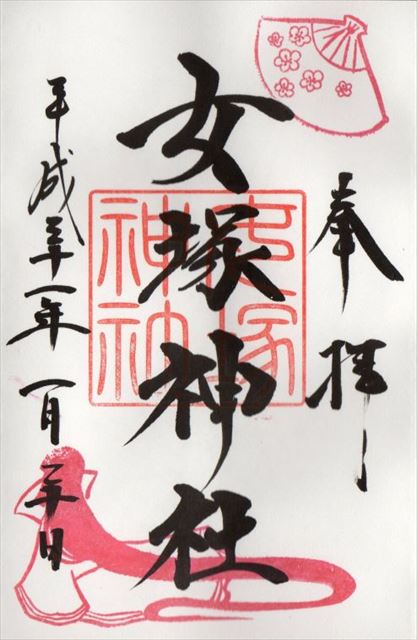 奉拝
女塚神社
女塚
神社
平成三十一年一月二十日